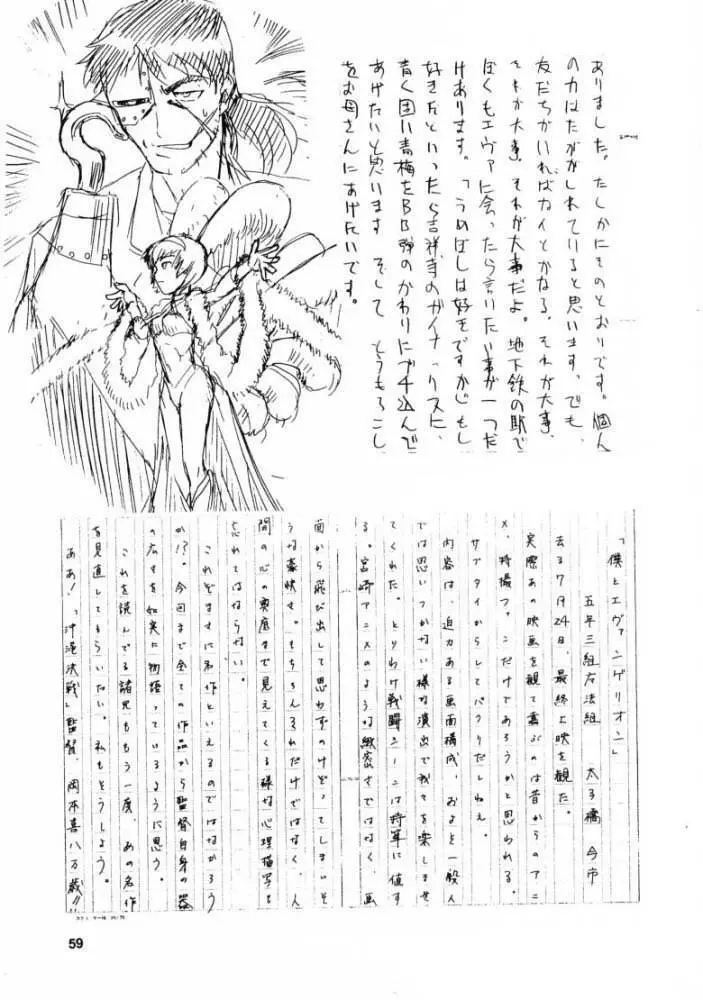 ありました。たしかにそのとおりです。個人
の力はたかがしれていると思います。でも、
友だちがいればナイとかなる。それが大事、
それが大事、それが大事だよ。地下鉄の駅で
ぼくもエヴァに会ったら言いたい事が一つだ
けあります。「うめぼしは好きですか」もし
好きだといったら吉祥寺のガイナックスに、
青く固い青梅をBB弾のかわりにブチ込んで
あげたいと思います そして とうもろこし
をお母さんにあげたいです。
「僕とエヴァンゲリオン」
五年三組
去る7月24日、最終上映を観た。
実際あの映画を観て喜ぶのは昔からのアニ
メ、特撮っ
こだけであろうかと思われる。
サブタイからしてパクリだしねぇ。
内容は、迫力ある画面構成、およそ一般人
では思いつかない様な演出で我々を楽しませ
てくれた。とりわけ戦闘シーンは特筆に値す
る。宮崎アニメのような緻密さではなく、画
面から飛び出して思わずのけぞってしまいそ
うな豪快さ。もちろんそれだけではなく、人
間の心の奥底まで見えてくる様な心理描写も
忘れてはならない。
これぞまさに名作といえるのではなかろう
か!?。今回まで全ての作品から監督自身の器
の広さを如実に物語っているように思う。
これを読んでる諸兄ももう一度、あの名作
を見直してもらいたい。私もそうしよう。
ああ!「沖縄決戦」監督、岡本喜八万歳!!
59